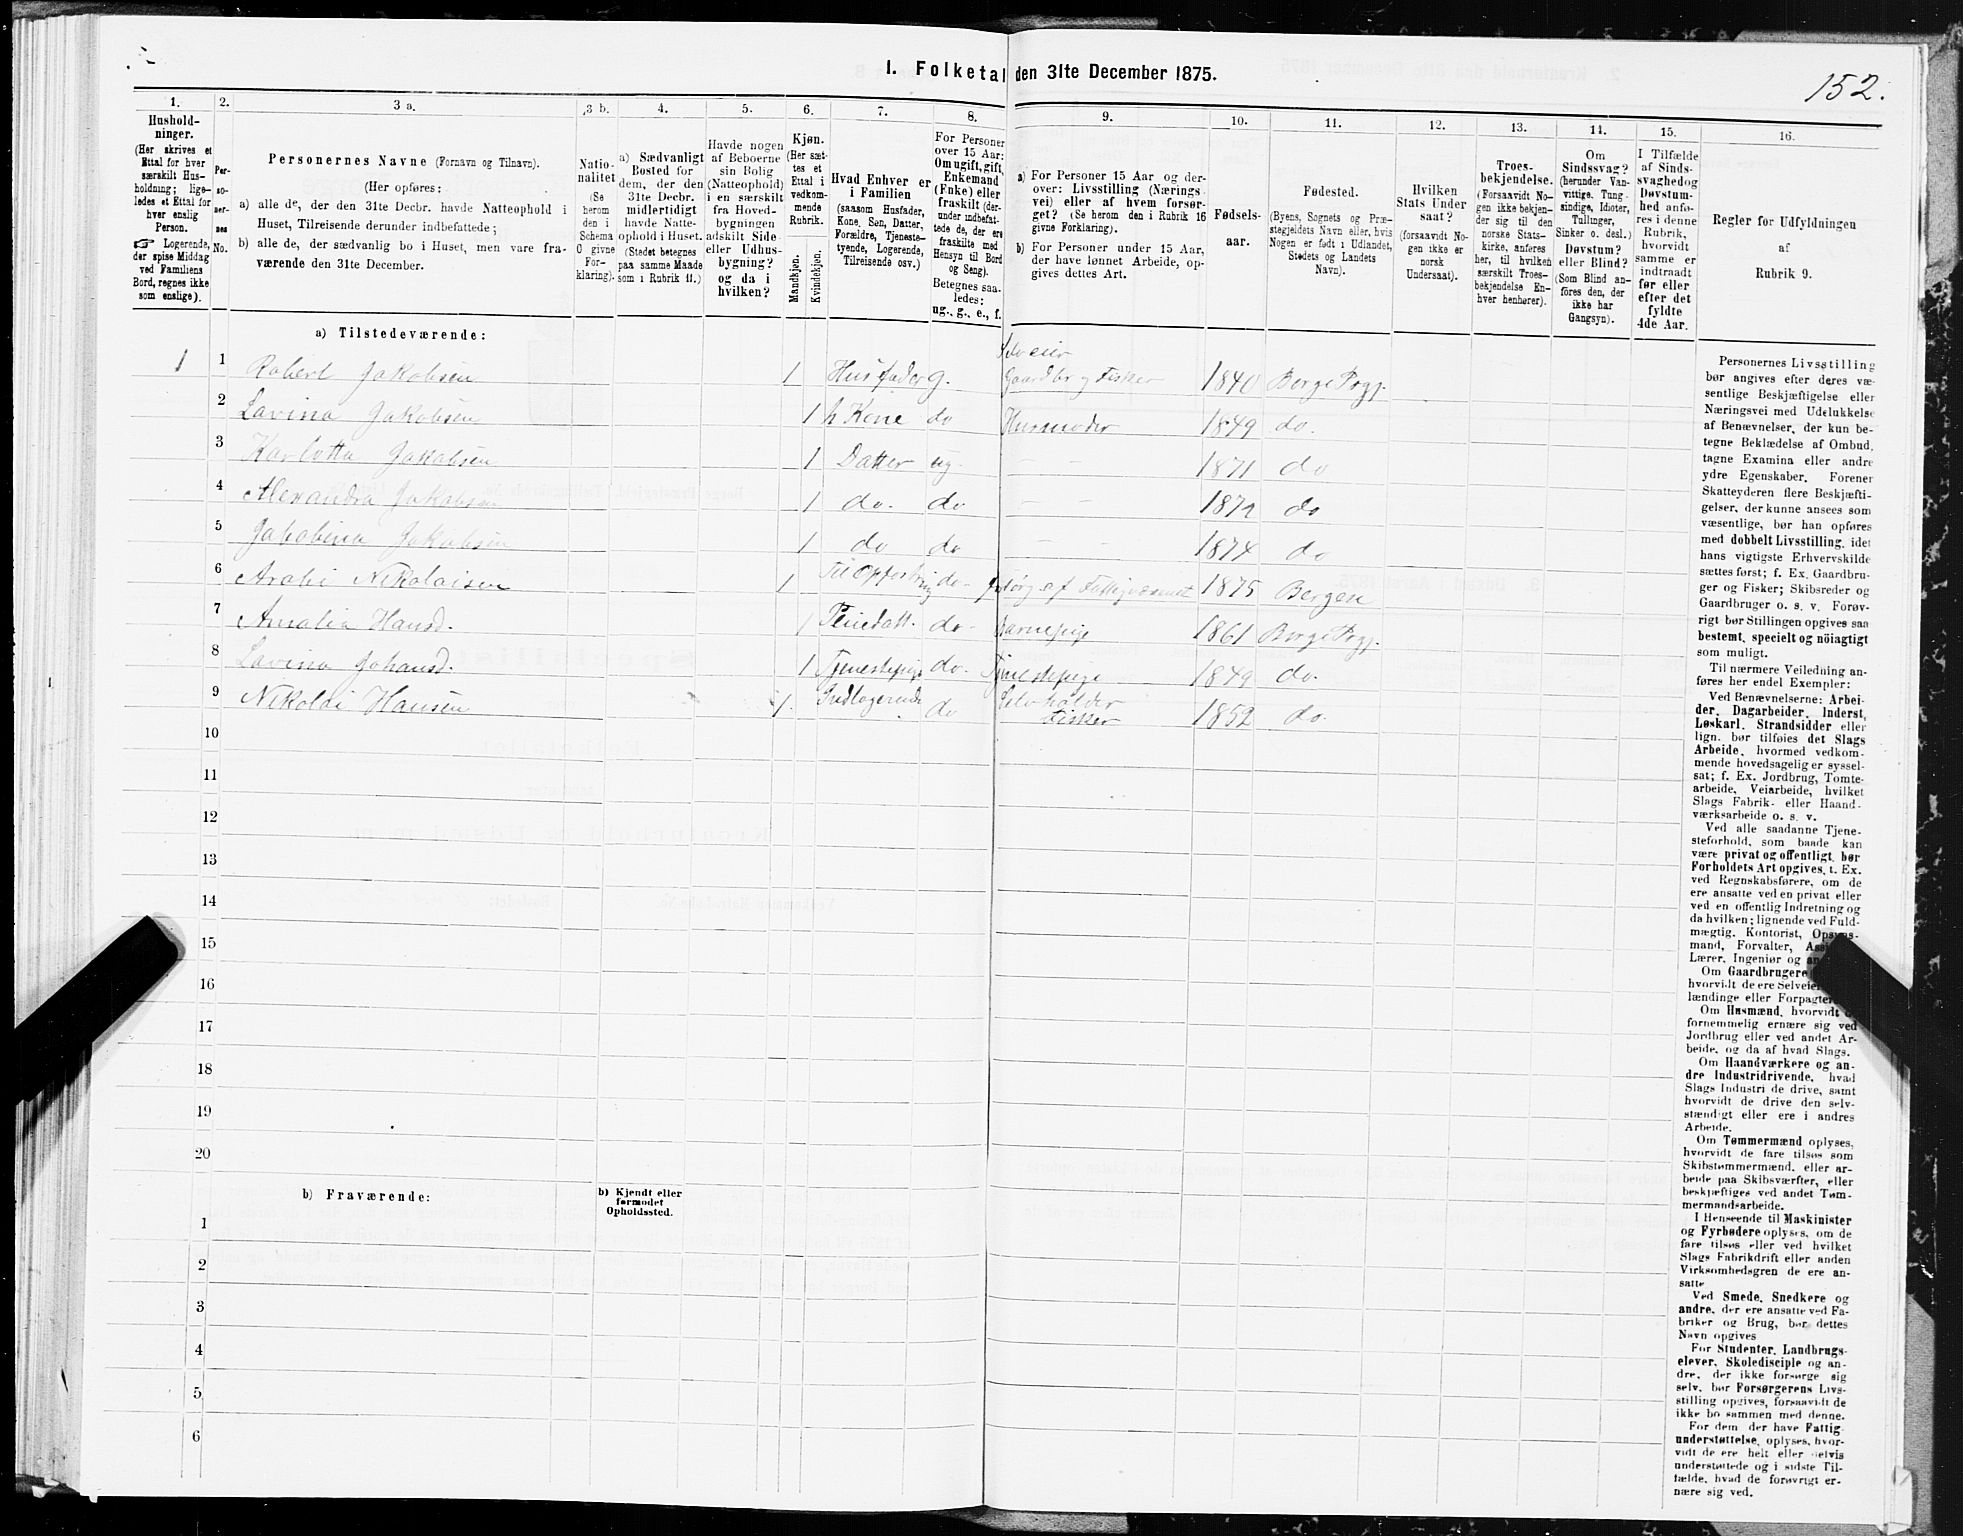 1. Folketal den 31te December 1875.
152.
1.
Hushold-
ninger.
(Her skrives et
Ettal for hver
særskilt Hus-
holdning; lige-
ledes et Ettal for
hver enslig
Person.
☞ Logerende,
der spise Middag
ved Familiens
Bord, regnes ikke
som enslige).
2.
Per-
so-
ner-
nes
No.
3 a.
Personernes Navne (Fornavn og Tilnavn).
(Her opføres:
a) alle de, der den 31te Decbr. havde Natteophold i
Huset, Tilreisende derunder indbefattede;
b) alle de, der sædvanlig bo i Huset, men vare fra-
værende den 31te December.
3 b.
Natio-
nalitet
(Se
herom
den i
Schema
givne
For-
klaring).
4.
a) Sædvanligt
Bosted for
dem, der den
31te Decbr.
midlertidigt
havde Natte-
ophold i Huset.
(Stedet betegnes
paa samme Maade
som i Rubrik 11.)
5.
Havde nogen
af Beboerne
sin Bolig
(Natteophold)
i en særskilt
fra Hoved-
bygningen
adskilt Side-
eller Udhus-
bygning?
og da i
hvilken?
6.
Kjøn.
(Her sæt-
tes et
Ettal i
vedkom-
mende
Rubrik.
Mandkjøn.
Kvindekjøn.
7.
Hvad Enhver er
i Familien
(saasom Husfader,
Kone, Søn, Datter,
Forældre, Tjeneste-
tyende, Logerende,
Tilreisende osv.)
8.
For Personer
over 15 Aar:
Om ugift, gift,
Enkemand
(Enke) eller
fraskilt (der-
under indbefat-
tede de, der ere
fraskilte med
Hensyn til Bord
og Seng).
Betegnes saa-
ledes:
ug., g., e., f.
9.
a) For Personer 15 Aar og der-
over: Livsstilling (Nærings-
vei) eller af hvem forsør-
get? (Se herom den i Rubrik 16
givne Forklaring).
b) For Personer under 15 Aar,
der have lønnet Arbeide, op-
gives dettes Art.
10.
Fødsels-
aar.
11.
Fødested.
(Byens, Sognets og Præ-
stegjeldets Navn eller, hvis
Nogen er født i Udlandet,
Stedets og Landets
Navn).
12.
Hvilken
Stats Under
saat?
(forsaavidt No-
gen ikke er
norsk
Undersaat).
13.
Troes-
bekjendelse.
(Forsaavidt No-
gen ikke bekjen-
der sig til den
norske Stats-
kirke, anføres
her, til hvilken
særskilt Troes-
bekjendelse En-
hver henhører).
14.
Om
Sindssvag?
(herunder Van-
vittige, Tung-
sindige, Idioter,
Tullinger,
Sinker o. desl.)
Døvstum?
eller Blind?
(Som Blind an-
føres den, der
ikke har
Gangsyn).
15.
I Tilfælde
af Sinds-
svaghed og
Døvstum-
hed anfø-
res i denne
Rubrik,
hvorvidt
samme er
indtraadt
før eller
efter det
fyldte
4de Aar.
16.
Regler for Udfyldningen
af
Rubrik 9.
a) Tilstedeværende:
1 1 Robert Jakobsen 1 Husfader g. Selveier Gaardbr og Fisker 1840 Borge Prgj.
2 Lavina Jakobsen 1 h Kone do Husmoder 1849 do.
3 Karlotta Jakobsen 1 Datter ug. - - 1871 do
4 Alexandra Jakobsen 1 do. do - - do
5 Jakobina Jakobsen 1 do do - - 1874 do
6 Nikolaisen 1 Til Opfostring do. forsørg. af Fattigvæsenet 1875 Bergen
7 Amalia Hansd. 1 do. Barnepige 1861 Borge Prgj.
8 Lavina Johansd. 1 Tjenestepige do. Tjenestepige 1849 do.
9 Nikolai Hansen 1. Indlogerende do Fisker 1852 do.
10
11
12
13
14
15
16
17
18
19
20
b) Fraværende:
b) Kjendt eller
formodet
Opholdssted.
1
2
3
4
5
6
Personernes Livsstilling
bør angives efter deres væ-
sentlige Beskjæftigelse eller
Næringsvei med Udelukkelse
af Benævnelser, der kun be-
tegne Beklædelse af Ombud,
tagne Examina eller andre
ydre Egenskaber. Forener
Skatteyderen flere Beskjæfti-
gelser, der kunne ansees som
væsentlige, bør han opføres
med dobbelt Livsstilling, idet
hans vigtigste Erhvervskilde
sættes først; f. Ex. Gaardbru-
ger og Fisker; Skibsreder og
Gaardbruger o. s. v. Forøv-
rigt bør Stillingen opgives saa
bestemt, specielt og nöiagtigt
som muligt.
Til nærmere Veiledning an-
føres her endel Exempler:
Ved Benævnelserne: Arbei-
der, Dagarbeider, Inderst,
Løskarl, Strandsidder eller
lign. bør tilføies det Slags
Arbeide, hvormed vedkom-
mende hovedsagelig er syssel-
sat; f. Ex. Jordbrug, Tomte-
arbeide, Veiarbeide, hvilket
Slags Fabrik- eller Haand-
værksarbeide o. s. v.
Ved alle saadanne Tjene-
steforhold, som baade kan
være privat og offentligt, bør
Forholdets Art opgives, f. Ex.
ved Regnskabsførere, om de
ere ansatte ved en privat eller
ved en offentlig Indretning og
da hvilken; lignende ved Fuld-
mægtig, Kontorist, Opsyns-
mand, Forvalter,
Lærer, Ingeniør og
Om Gaardbrugere
hvorvidt de ere Selveiere,
lændinge eller Forpagtere.
Om Husmænd, hvorvidt de
fornemmelig ernære sig ved
Jordbrug eller ved andet Ar-
beide, og da af hvad Slags.
Om Haandværkere og an-
dre Industridrivende, hvad
Slags Industri de drive, samt
hvorvidt de drive den selv-
stændigt eller ere i andres
Arbeide.
Om Tømmermænd oplyses,
hvorvidt de fare tilsøs som
Skibstømmermænd, eller ar-
beide paa Skibsværfter, eller
beskjæftiges ved andet Tøm-
mermandsarbeide.
I Henseende til Maskinister
og Fyrbødere oplyses, om de
fare tilsøs eller ved hvilket
Slags Fabrikdrift eller anden
Virksomhedsgren de ere an-
satte
Ved Smede, Snedkere og
andre, der ere ansatte ved Fa-
briker og Brug, bør dettes
Navn opgives
For Studenter, Landbrugs-
elever, Skoledisciple og an-
dre, der ikke forsørge sig
selv, bør Forsørgerens Livs-
stilling opgives, forsaavidt de
ikke bo sammen med denne.
For dem, der have Fattig-
understøttelse, oplyses, hvor-
vidt de ere helt eller delvis
understøttede og i sidste Til-
fælde, hvad de forøvrigt er-
nære sig ved.